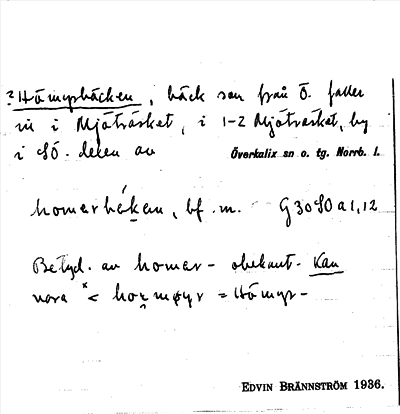 ? Hömyrbäcken, bäck som från Ö. faller
in i Mjöträsket, i 1-2 Mjöträsket, by
i SÖ. delen av Överkalix sn o. tg. Norrb. l.
homerbäken, bf. m. G30SO a 1,12
Betyd. av homer- obekant. Kan
vara *< hormøyr = Hömyr-
EDVIN BRÄNNSTRÖM 1936.